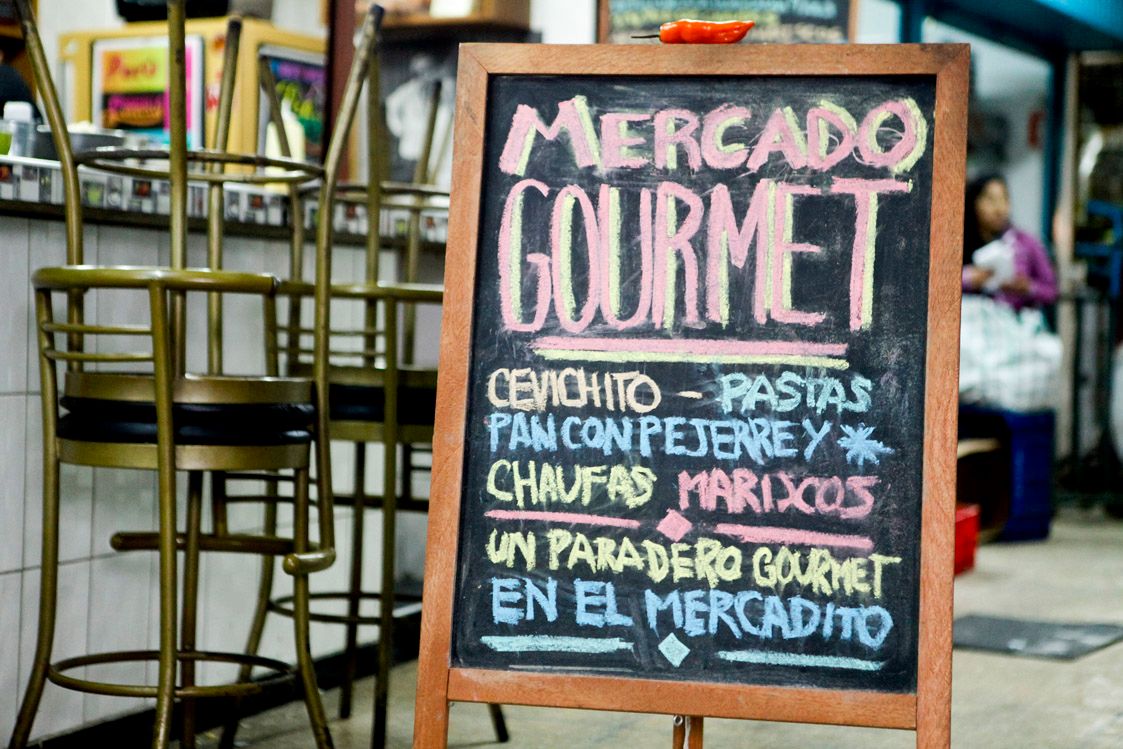 MERCADO
GOURMET
CEVICHITO - PASTAS
PAN CON PEJERREY *
CHAUFAS MARIXCOS
UN PARADERO GOURMET
EN EL MERCADITO